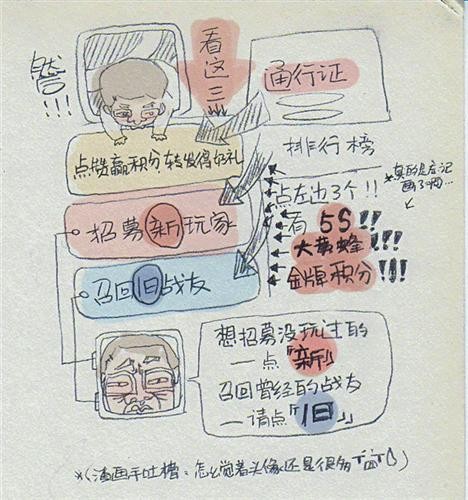 看这
!!!
通行证
点赞赢积分 转发得好礼
排行榜
招募新玩家
召回旧战友
点左边3个!!
看 5S!!
大黄蜂!!!
金牌积分!!!
想招募没玩过的
一点「新」
召回曾经的战友
一请点「旧」
*(漫画手吐槽:怎么觉着头像还是很